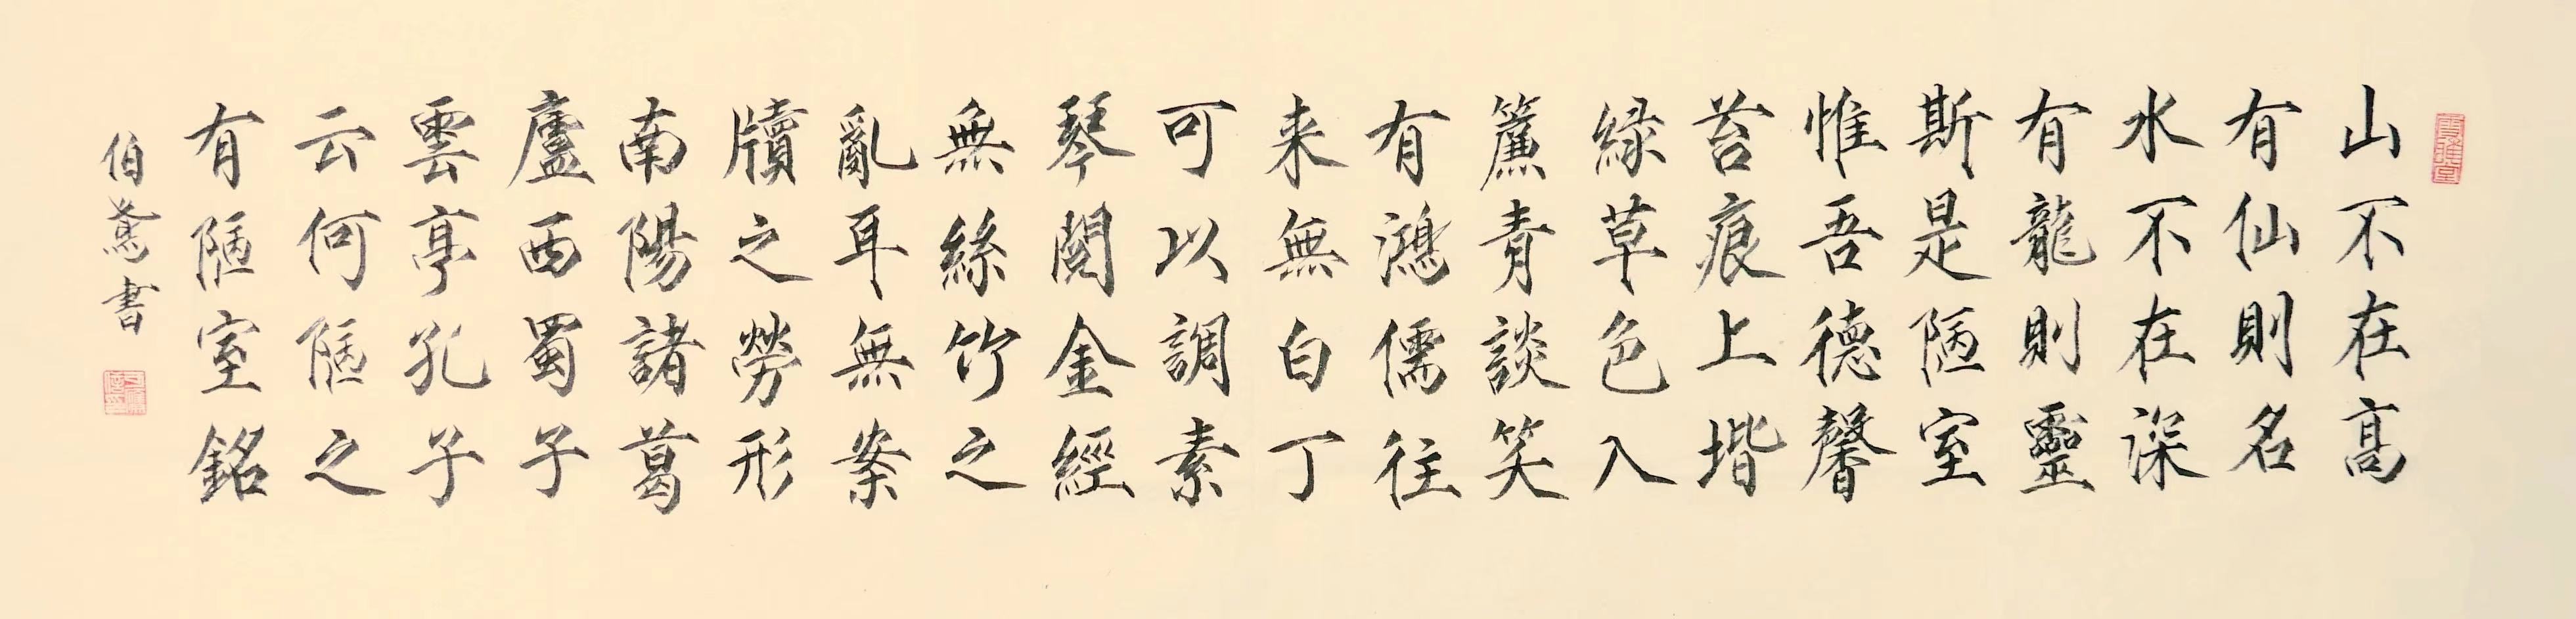 山不在高
有仙則名
水不在深
有龍則靈
斯是陋室
惟吾德馨
苔痕上堦
緑草色入
簾青談笑
有鴻儒往
来無白丁
可以調素
琴閱金經
無絲竹之
亂耳無案
牘之勞形
南陽諸葛
廬西蜀子
雲亭孔子
云何陋之
有陋室銘
伯鳶書